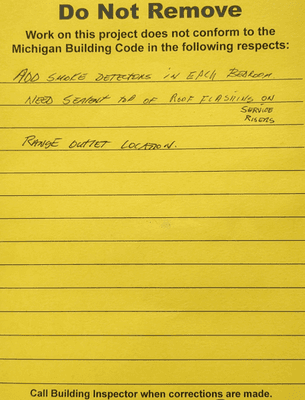 Do Not Remove
Work on this project does not conform to the
Michigan Building Code in the following respects:
ADD SMOKE DETECTORS IN EACH BEDROOM
NEED SEALENT TOP OF ROOF FLASHING ON
SERVICE
RISERS
RANGE OUTLET LOCATION.
Call Building Inspector when corrections are made.